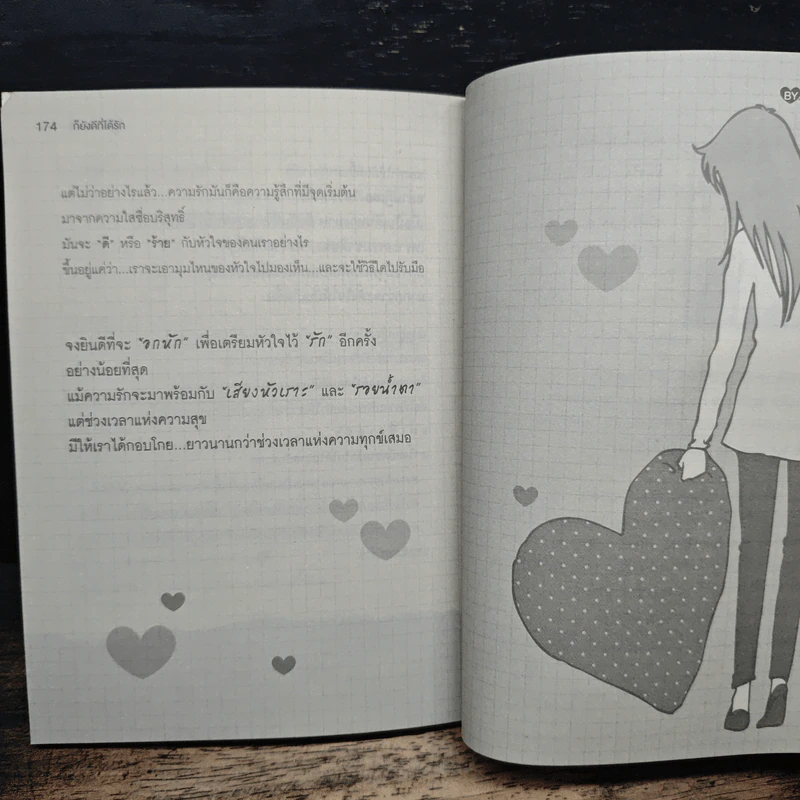 174 ก็ยังดีที่ได้รัก
แต่ไม่ว่าอย่างไรแล้ว...ความรักมันก็คือความรู้สึกที่มีจุดเริ่มต้น
มาจากความใสซื่อบริสุทธิ์
มันจะ "ดี" หรือ "ร้าย" กับหัวใจของคนเราอย่างไร
ขึ้นอยู่แค่ว่า...เราจะเอามุมไหนของหัวใจไปมองเห็น...และจะใช้วิธีใดไปรับมือ
จงยินดีที่จะ "อกหัก" เพื่อเตรียมหัวใจไว้ "รัก" อีกครั้ง
อย่างน้อยที่สุด
แม้ความรักจะมาพร้อมกับ "เสียงหัวเราะ" และ "รอยน้ำตา"
แต่ช่วงเวลาแห่งความสุข
มีให้เราได้กอบโกย...ยาวนานกว่าช่วงเวลาแห่งความทุกข์เสมอ
BY